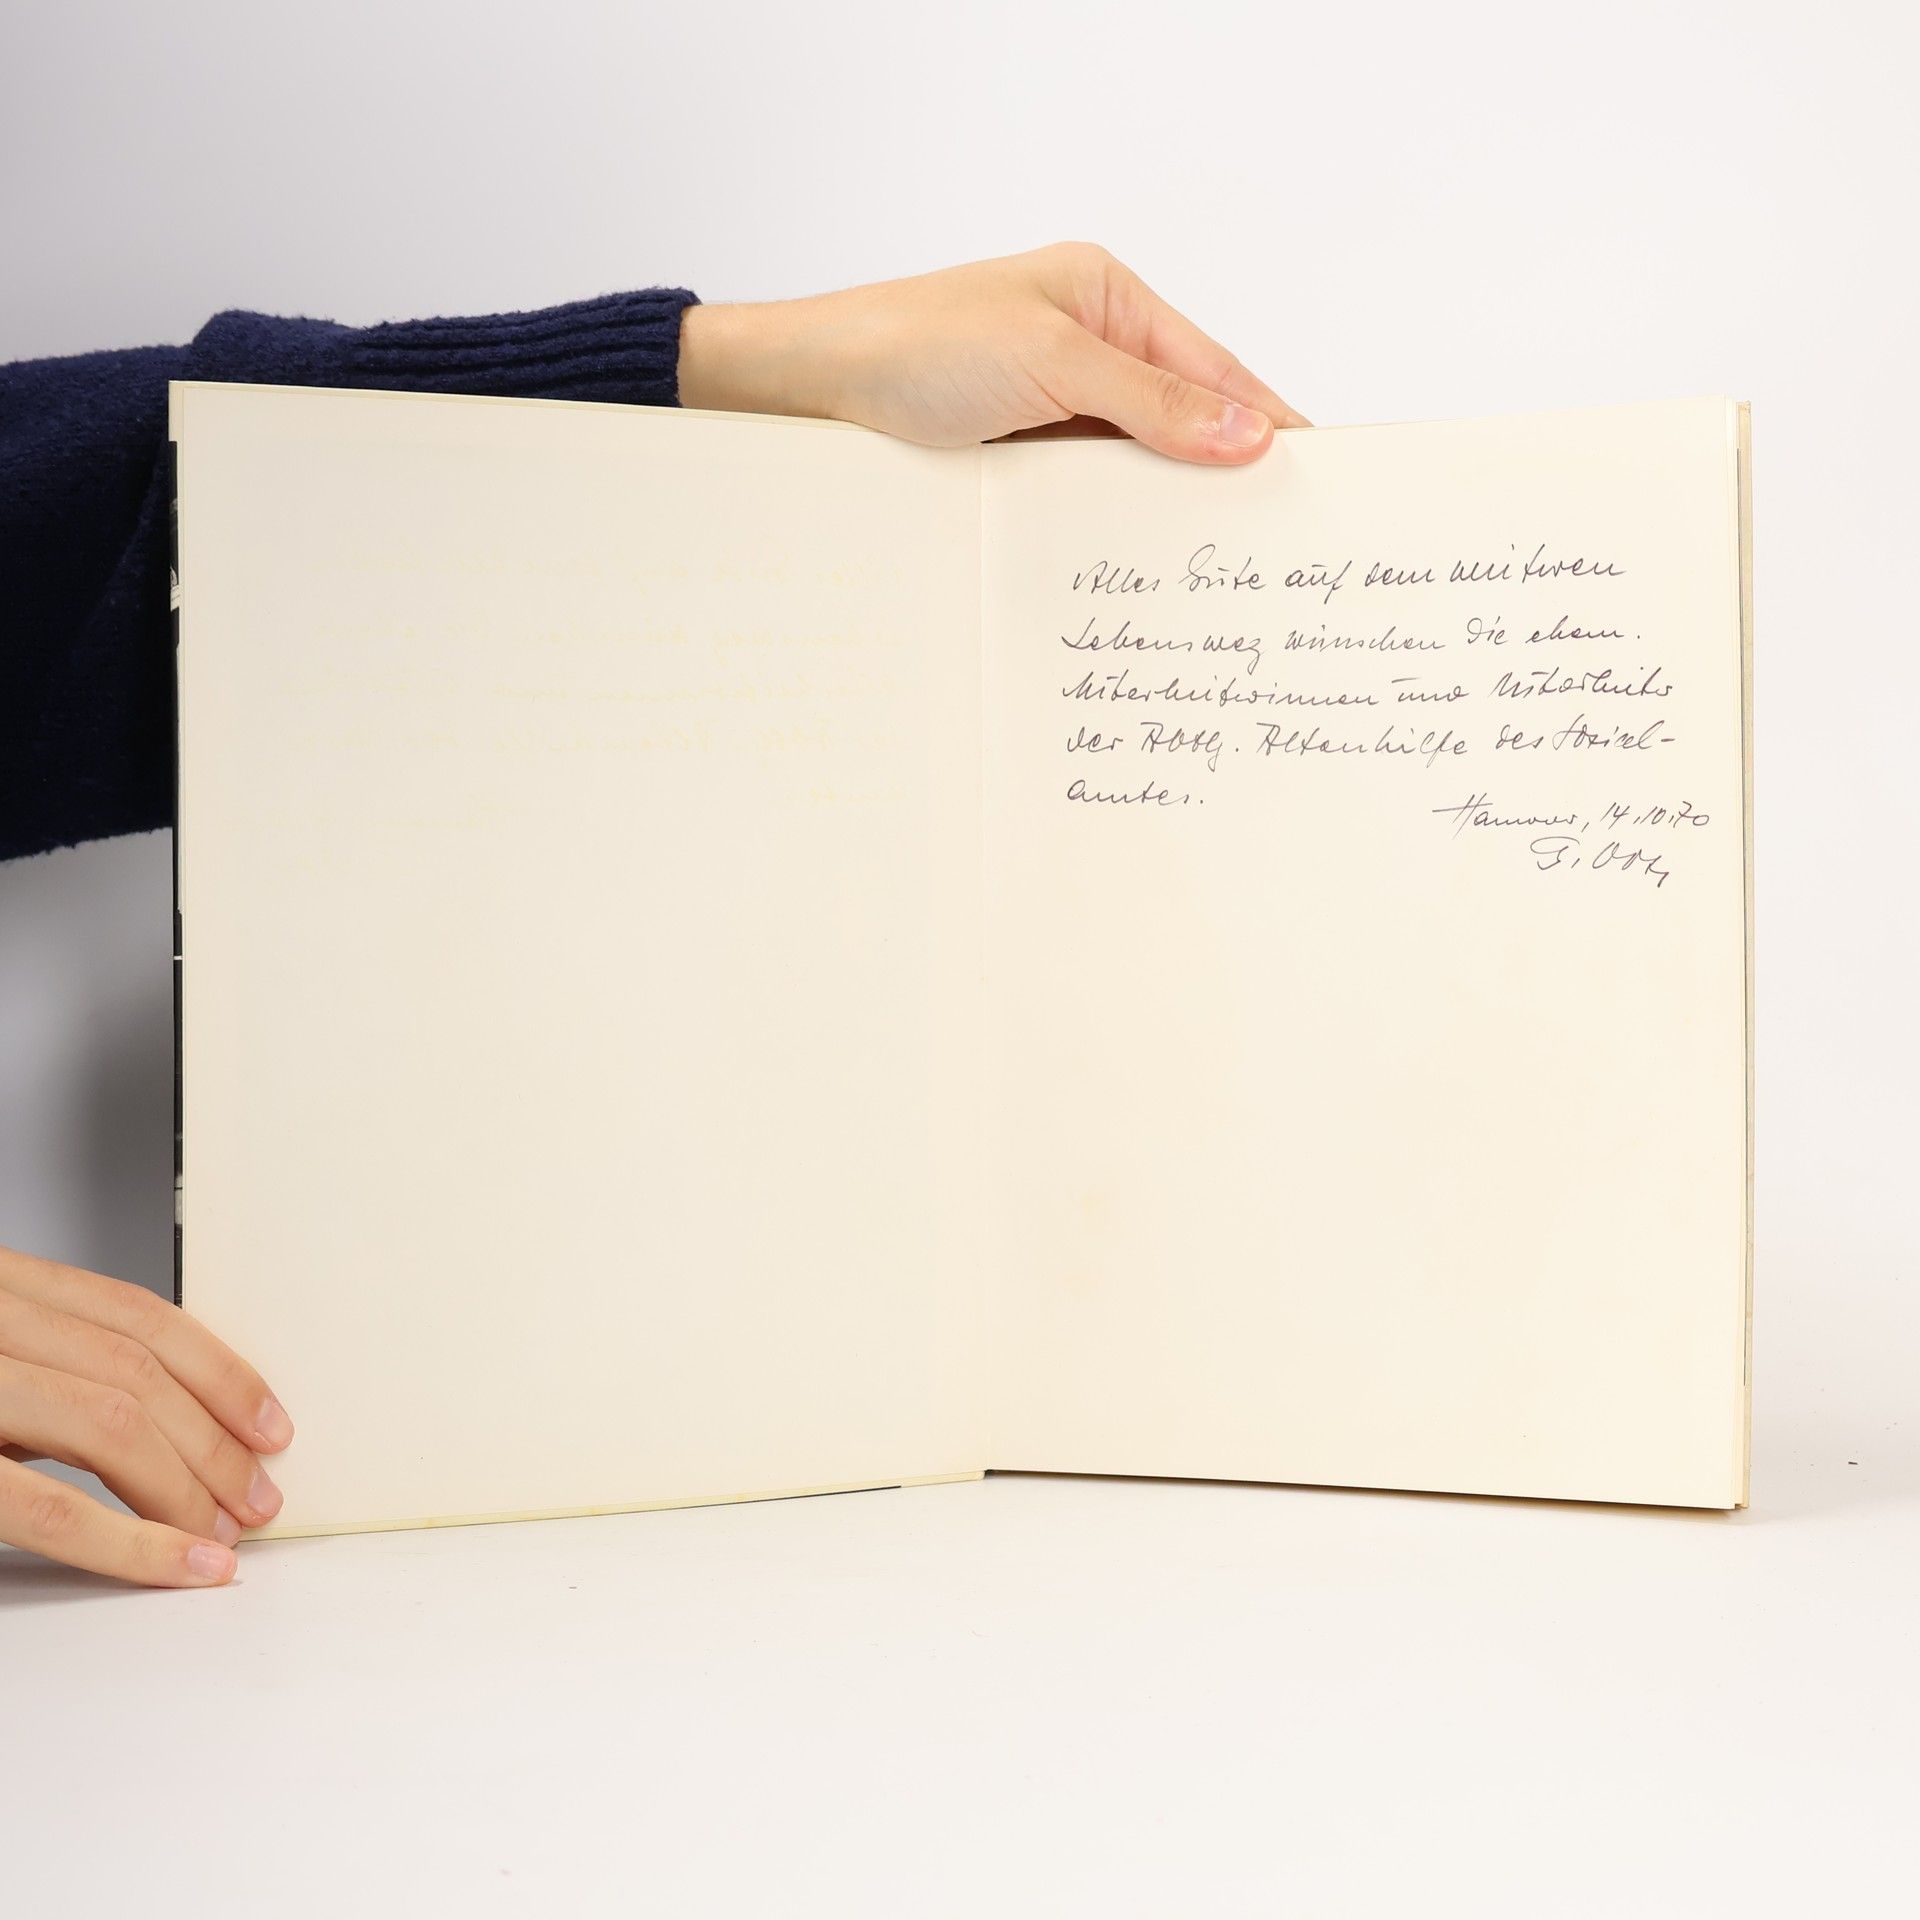 Alles Gute auf dem weiteren
Lebensweg wünschen die ehem.
Mitarbeiterinnen und Mitarbeiter
der Abtlg. Altenhilfe des Sozial-
amtes.
Hannover, 14.10.70